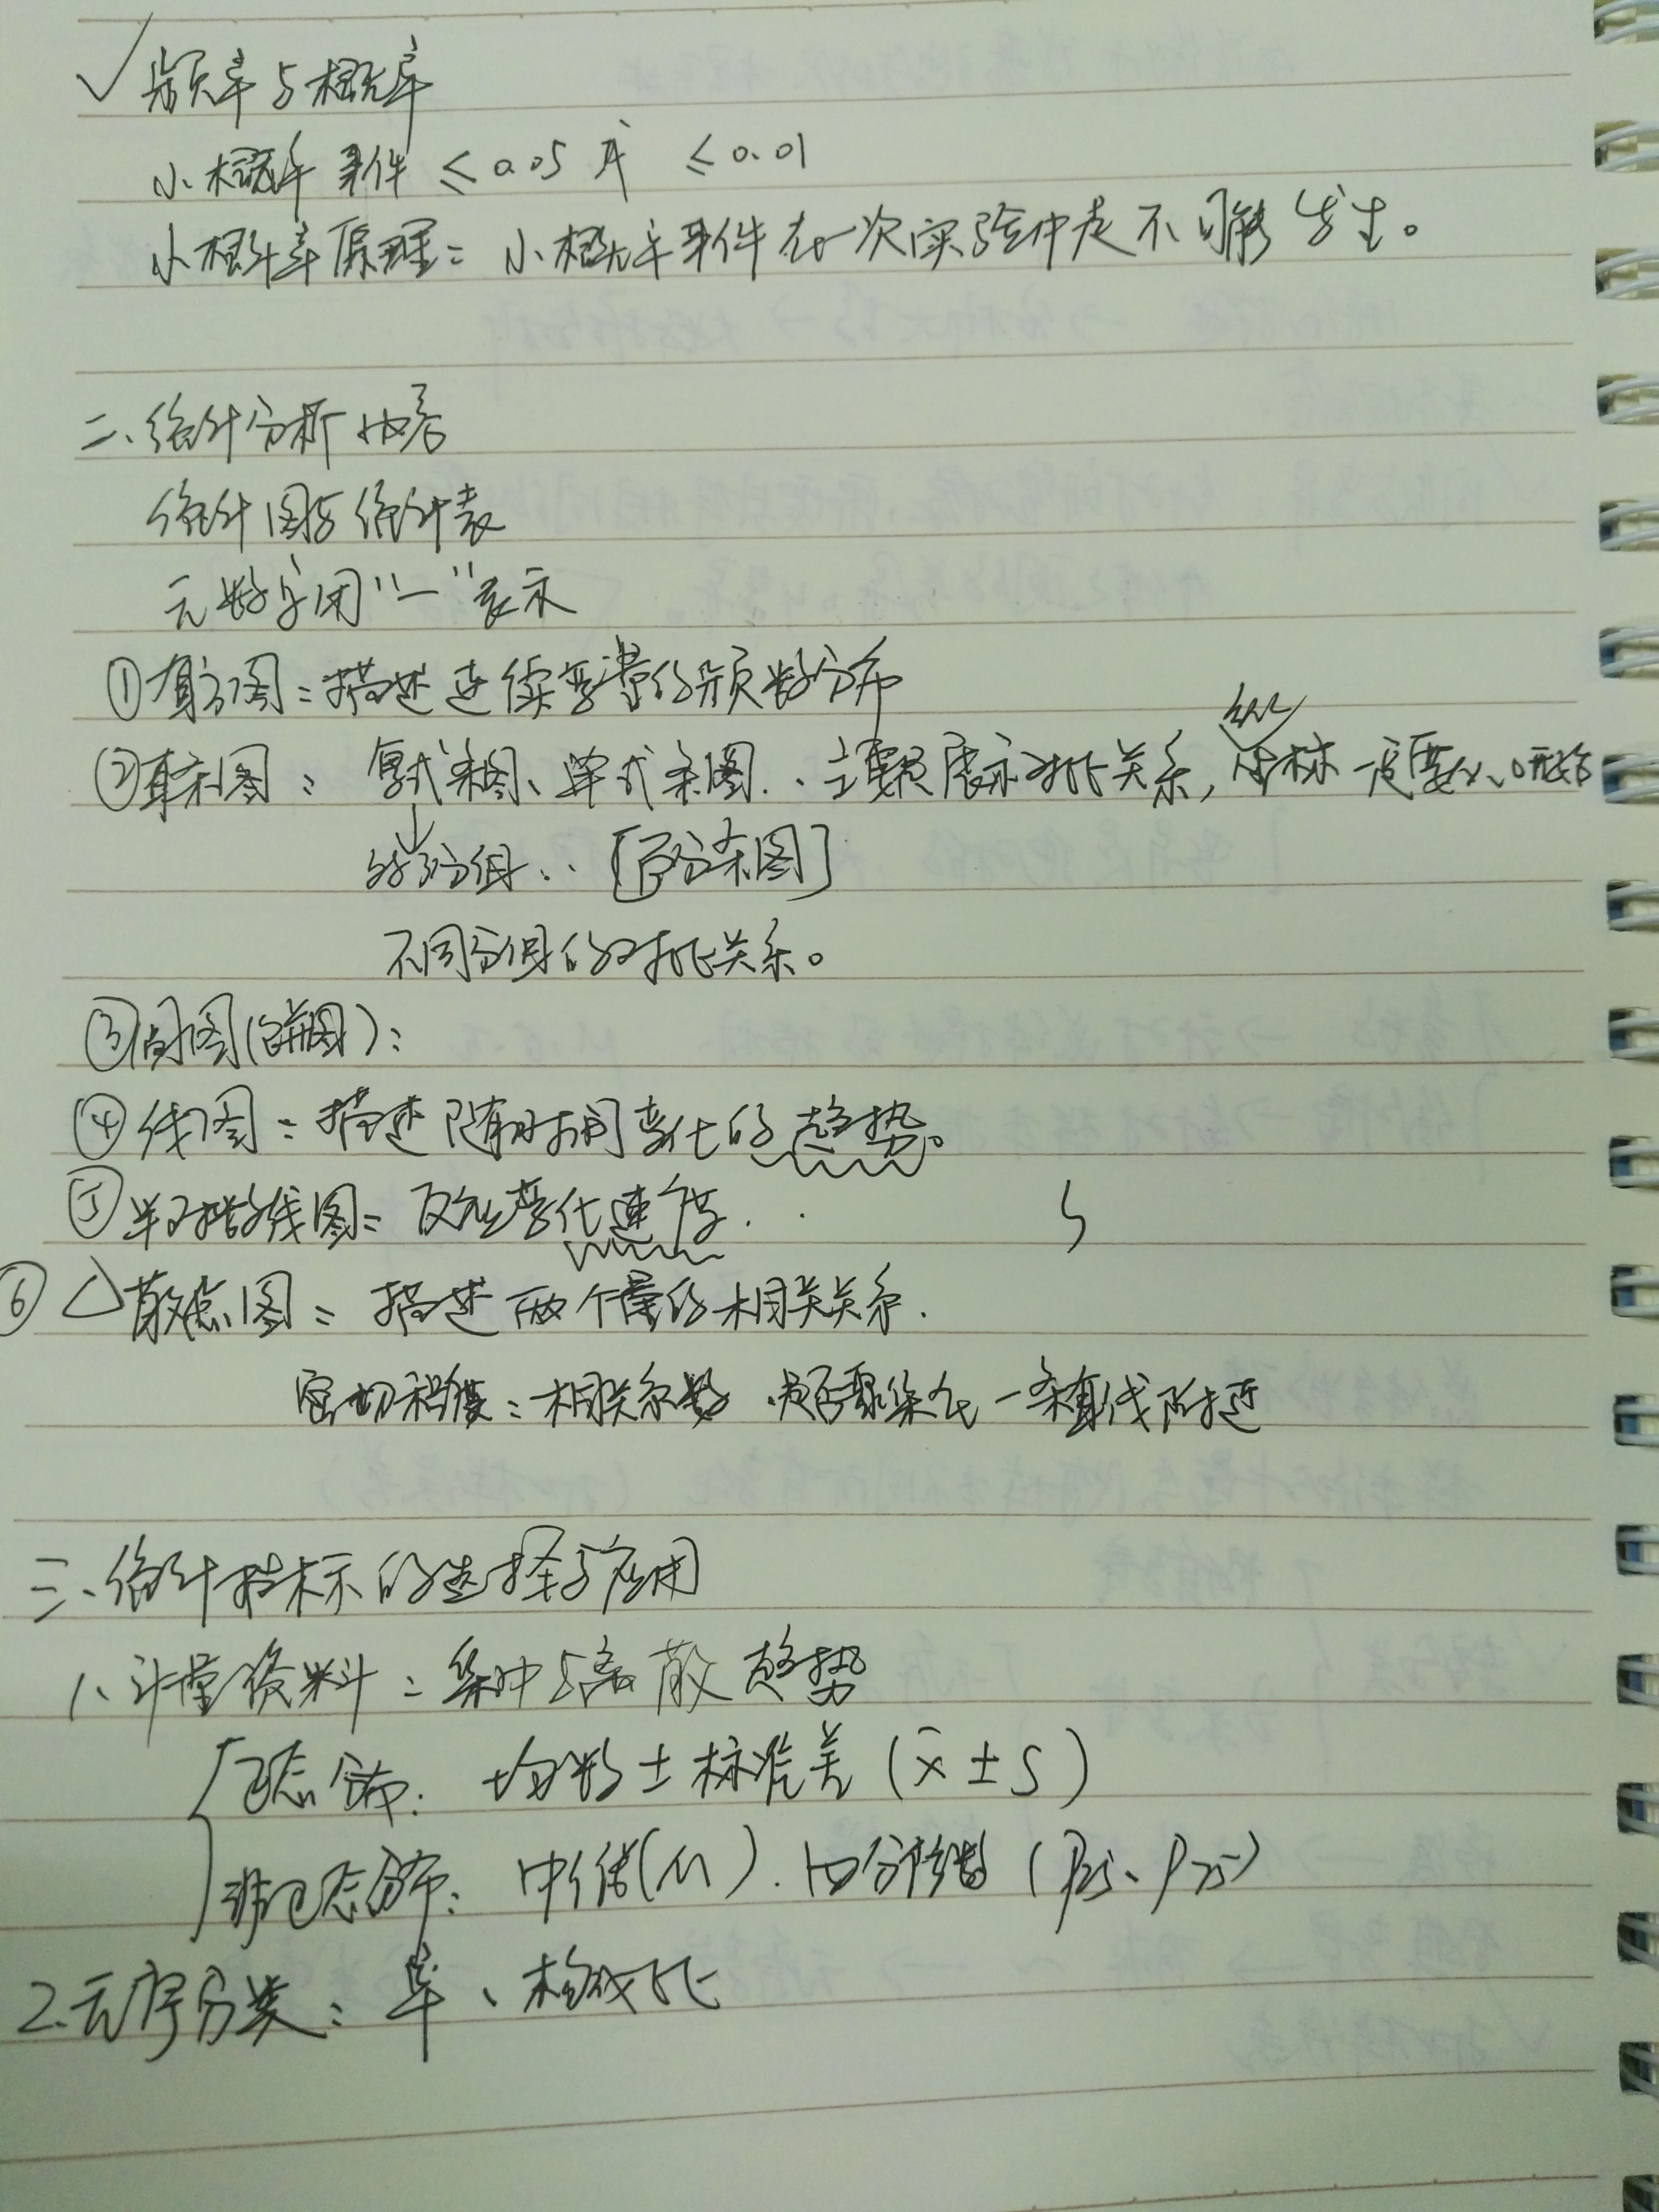 √频率与概率
小概率事件 ≤0.05 或 ≤0.01
小概率原理：小概率事件在一次实验中是不可能发生。
二、统计分析内容
统计图与统计表
无数字用“—”表示
①直方图：描述连续变量的频数分布
②直条图：复式条图、单式条图..主要是展示对比关系，纵坐标一定要从0开始
↓
分组.. [百分条图]
不同分组的对比关系。
③圆图(饼图)：
④线图：描述随时间变化的趋势。
⑤半对数线图：反应变化速度..
⑥△散点图：描述两个量的相关关系.
密切程度：相关系数.是否聚集在一条直线附近
三、统计指标的选择与应用
1、计量资料：集中与离散趋势
正态分布：均数±标准差(x̄±S)
非正态分布：中位数(M).四分位数(P25、P75)
2.无序分类：率、构成比